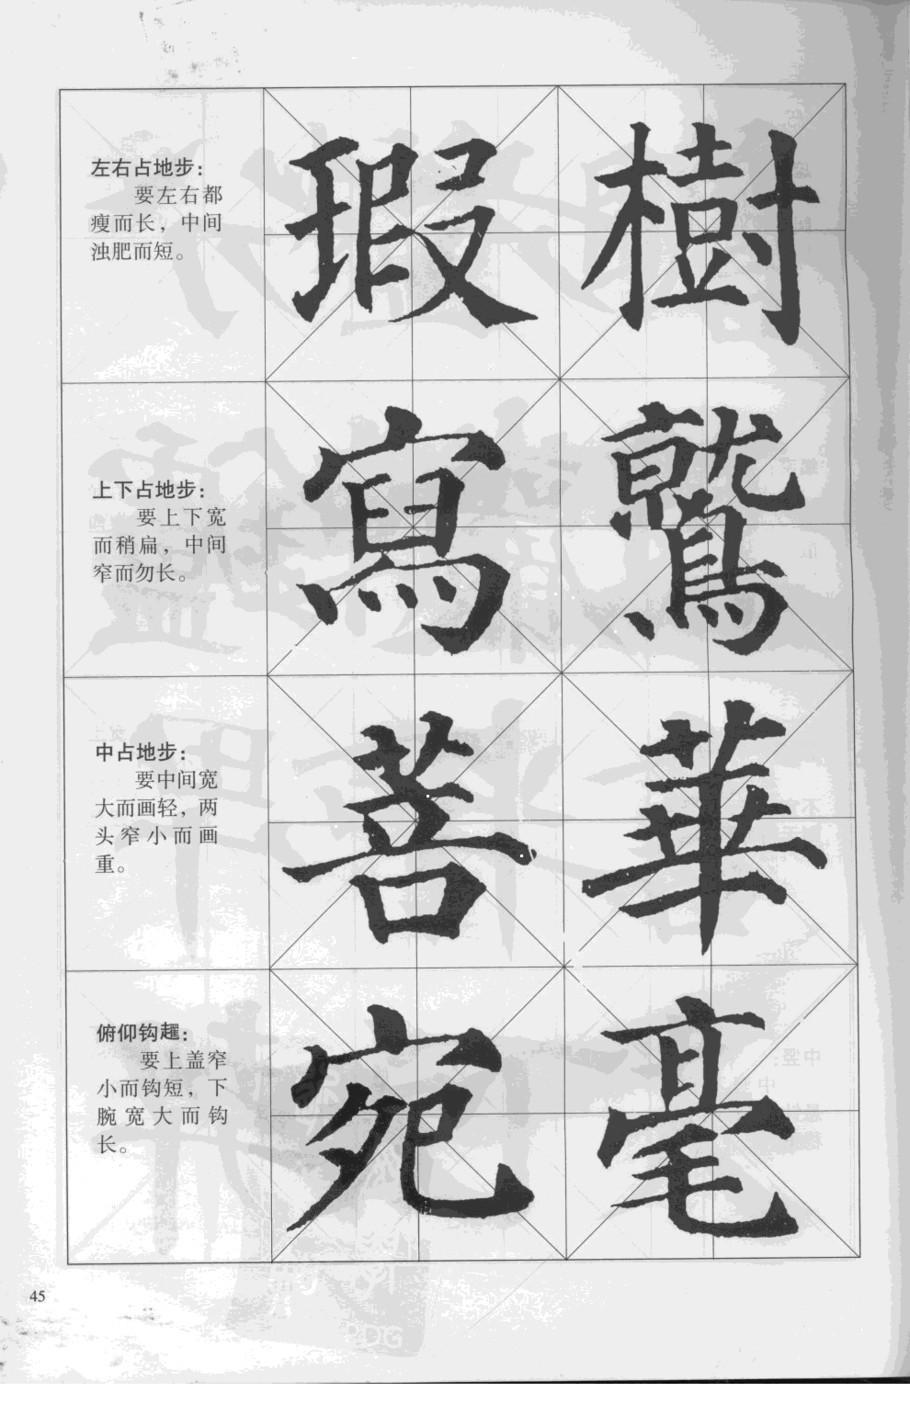 左右占地步：
要左右都
瘦而长，中间
浊肥而短。
瑕 樹
上下占地步：
要上下宽
而稍扁，中间
窄而勿长。
寫 鷲
中占地步：
要中间宽
大而画轻，两
头窄小而画
重。
菩 華
俯仰钩趯：
要上盖窄
小而钩短，下
腕宽大而钩
长。
宛 毫
45
PDG